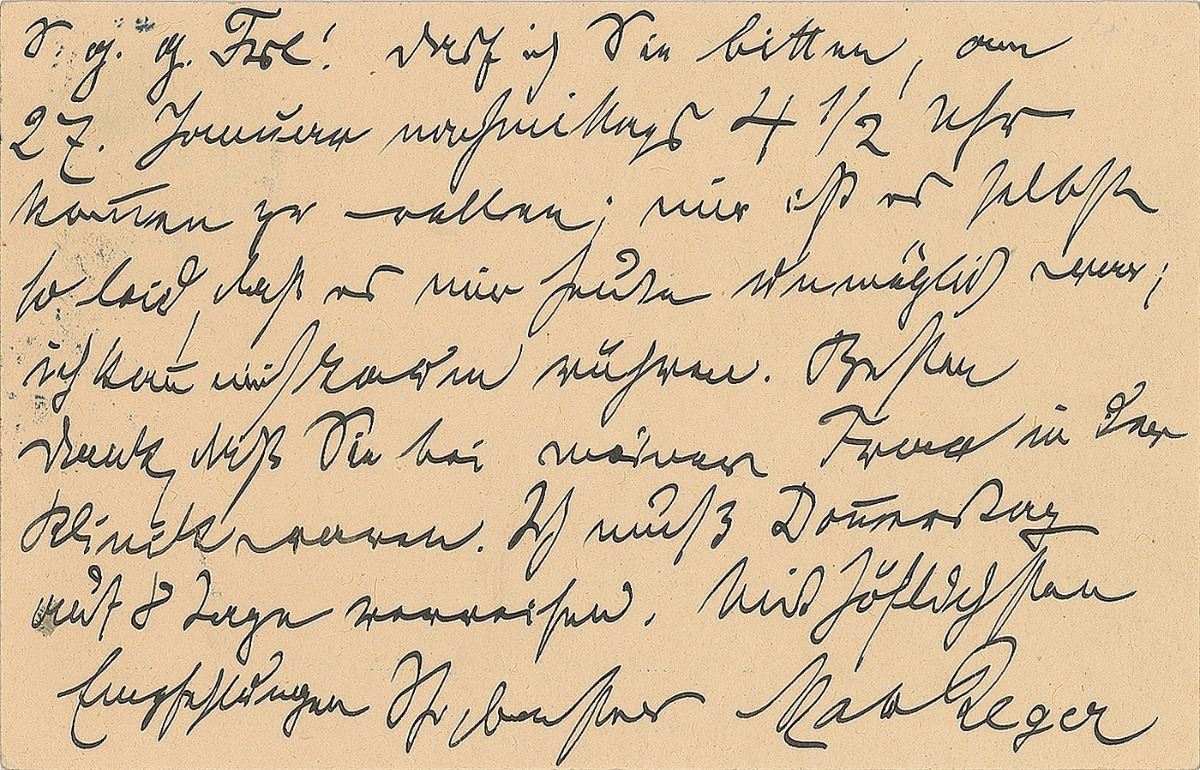 S. g. g. Frl! Darf ich Sie bitten, am
27. Januar nachmittags 4 1/2 Uhr
kommen zu wollen; mir ist es selbst
so leid, daß es mir heute unmöglich war;
ich kann mich kaum rühren. Besten
Dank, daß Sie bei meiner Frau in der
Klinik waren. Ich muß Donnerstag
auf 8 Tage verreisen. Mit höflichsten
Empfehlungen Ihr ergebenster Max Reger